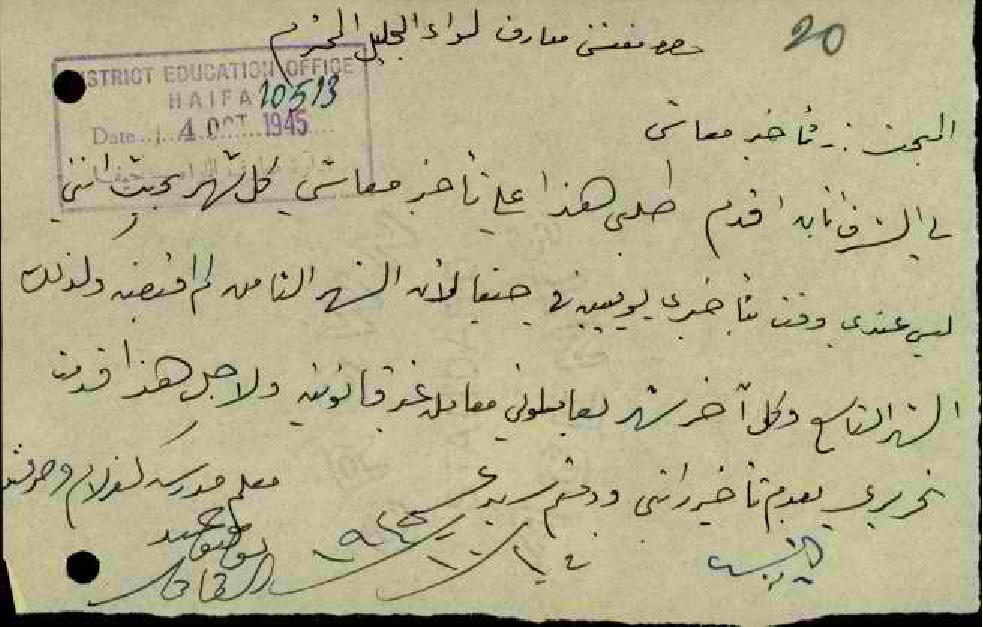 20
حضرة مفتش معارف لواء الجليل المحترم
DISTRICT EDUCATION OFFICE
HAIFA 10513
Date 4 OCT 1945
البحث :- تأخير معاشي
لي الشرف بأن اقدم طلبي هذا على تأخير معاشي كل شهر بحيث انني
ليس عندي وقت بتأخيري يوميين في حيفا لأن الشهر الثامن لم اقبضه ولذلك
الشهر التاسع وكل آخر شهر يعاملوني معاملة غير قانونية ولاجل هذا قدمت
تحريري بعدم تأخير راتبي ودمتم سيدي
معلم مدرسة